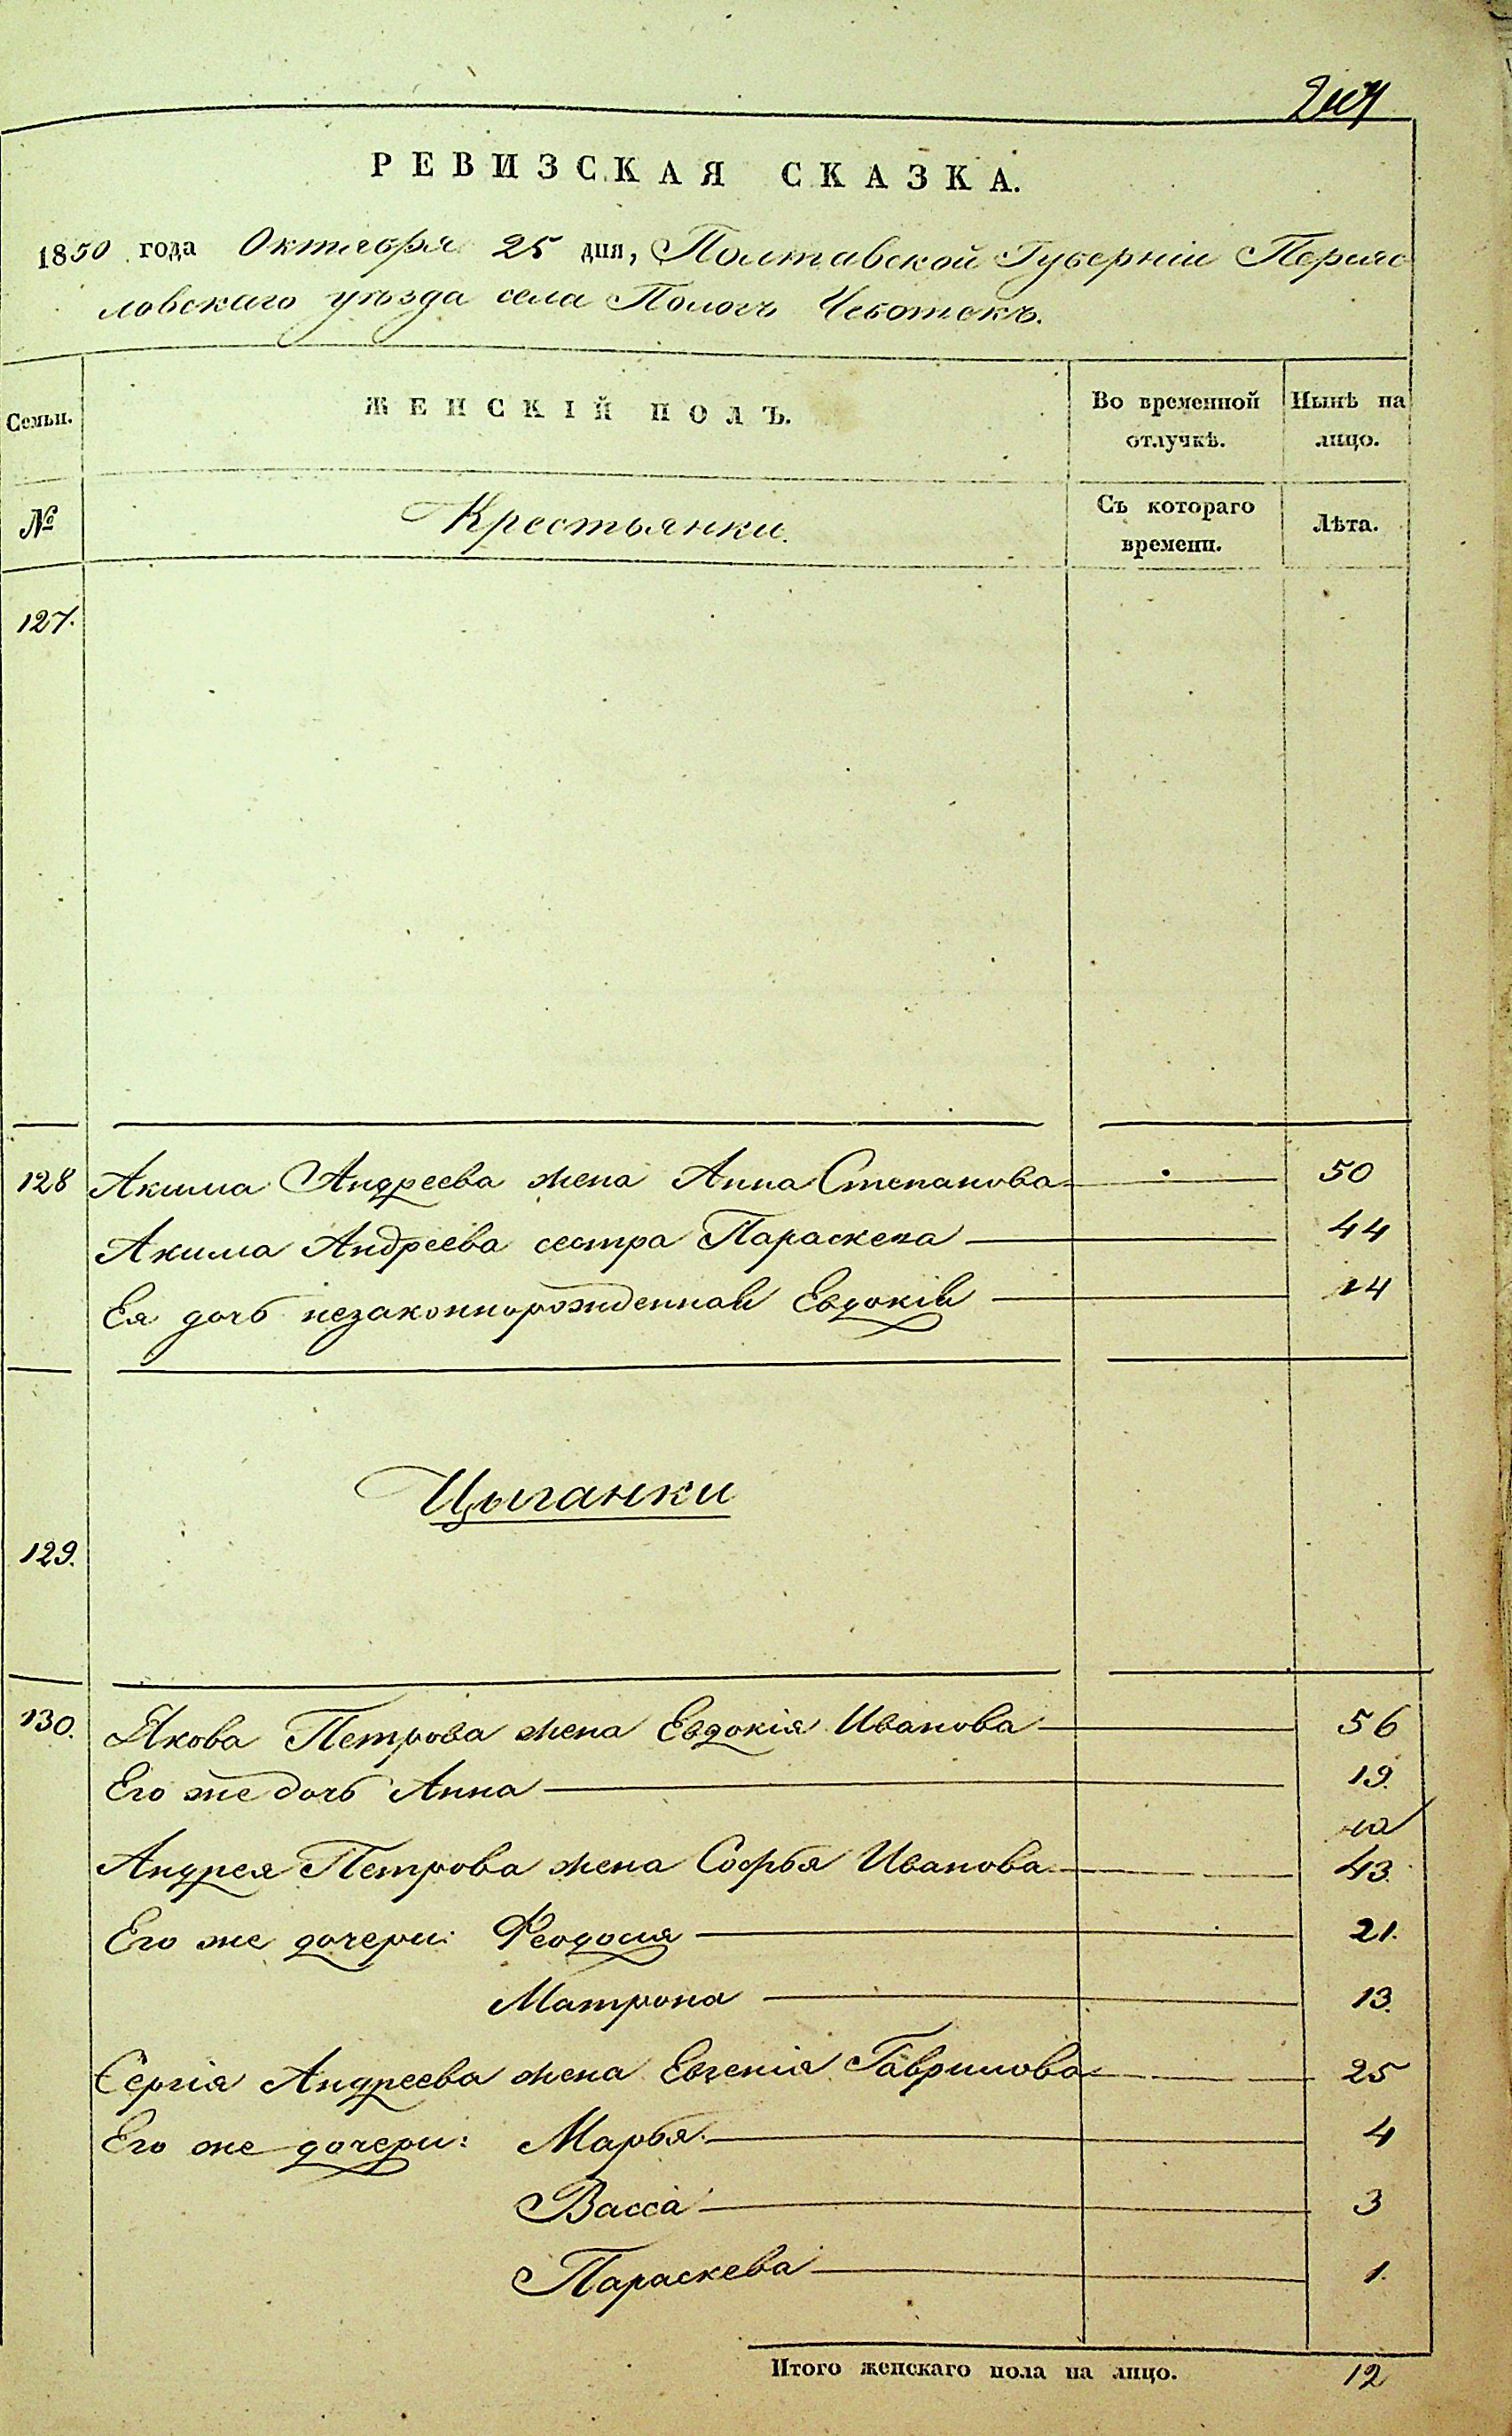 РЕВИЗСКАЯ СКАЗКА.
1850 года Октября 25 дня, Полтавской Губерніи Перяс
ловскаго уѣзда села Пологъ Чеботокъ.
Семьи.
ЖЕНСКІЙ ПОЛЪ.
Во временной отлучкѣ.
Нынѣ на лицо.
№
Крестьянки.
Съ котораго времени.
Лѣта.
127.
128 Акима Андреева жена Анна Степанова 50
Акима Андреева сестра Параскева 44
Ея дочь незаконнорожденная Евдокія 14
Цыганки
129.
130. Якова Петрова жена Евдокія Иванова 56
Его же дочь Анна 19.
Андрея Петрова жена Софья Иванова 43.
Его же дочери: Феодосия 21.
Матрона 13.
Сергія Андреева жена Евгенія Гаврилова 25
Его же дочери: Марья 4
Васса 3
Параскева 1.
Итого женскаго пола на лицо. 12